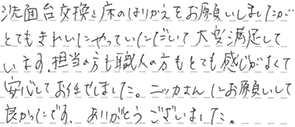 洗面台交換と床のはりかえをお願いしましたが
とてもきれいにやっていただいて大変満足して
います。担当の方も職人の方もとても感じがよくて
安心してお任せしました。ニッカさんにお願いして
良かったです。ありがとうございました。